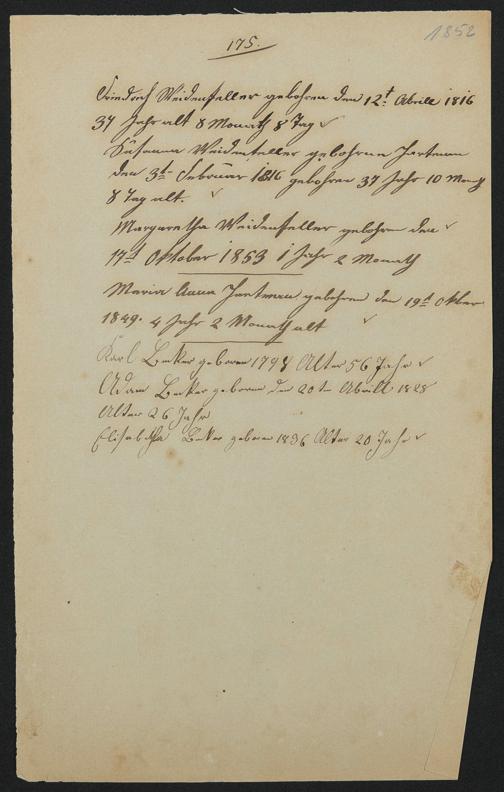 1852
175.
Friedrich Weidenfeller gebohren den 12t. Aprill 1816
37 Jahr alt 8 Monath 8 Tag
Susanna Weidenfeller gebohrne Hartman
den 3t. Februar 1816 gebohren 37 Jahr 10 Monath
8 Tag alt.
Margaretha Weidenfeller gebohren den
17t Oktober 1853 1 Jahr 2 Monath
Maria Anna Hartman gebohren den 19t Oktber
1849. 4 Jahr 2 Monath alt
Karl Beker geboren 1798 Alter 56 Jahr
Adam Beker geboren den 20ten Abrill 1828
Alter 26 Jahr
Elisabetha Beker geboren 1836 Alter 20 Jahr